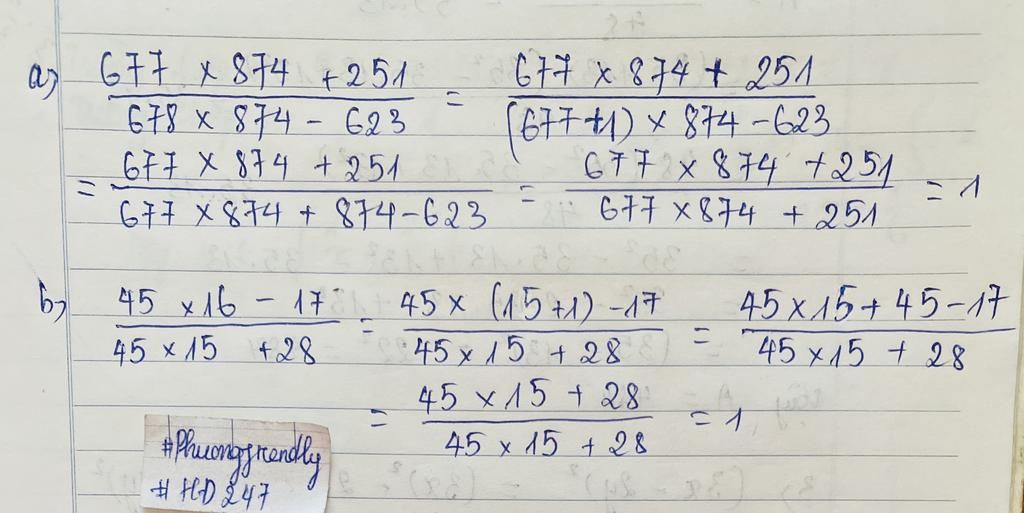 a) 677 × 874 + 251 / 678 × 874 − 623 = 677 × 874 + 251 / (677+1) × 874 − 623
= 677 × 874 + 251 / 677 × 874 + 874 − 623 = 677 × 874 + 251 / 677 × 874 + 251 = 1
b) 45 × 16 − 17 / 45 × 15 + 28 = 45 × (15+1) − 17 / 45 × 15 + 28 = 45 × 15 + 45 − 17 / 45 × 15 + 28
= 45 × 15 + 28 / 45 × 15 + 28 = 1
#Phuongfrendly
#HD247